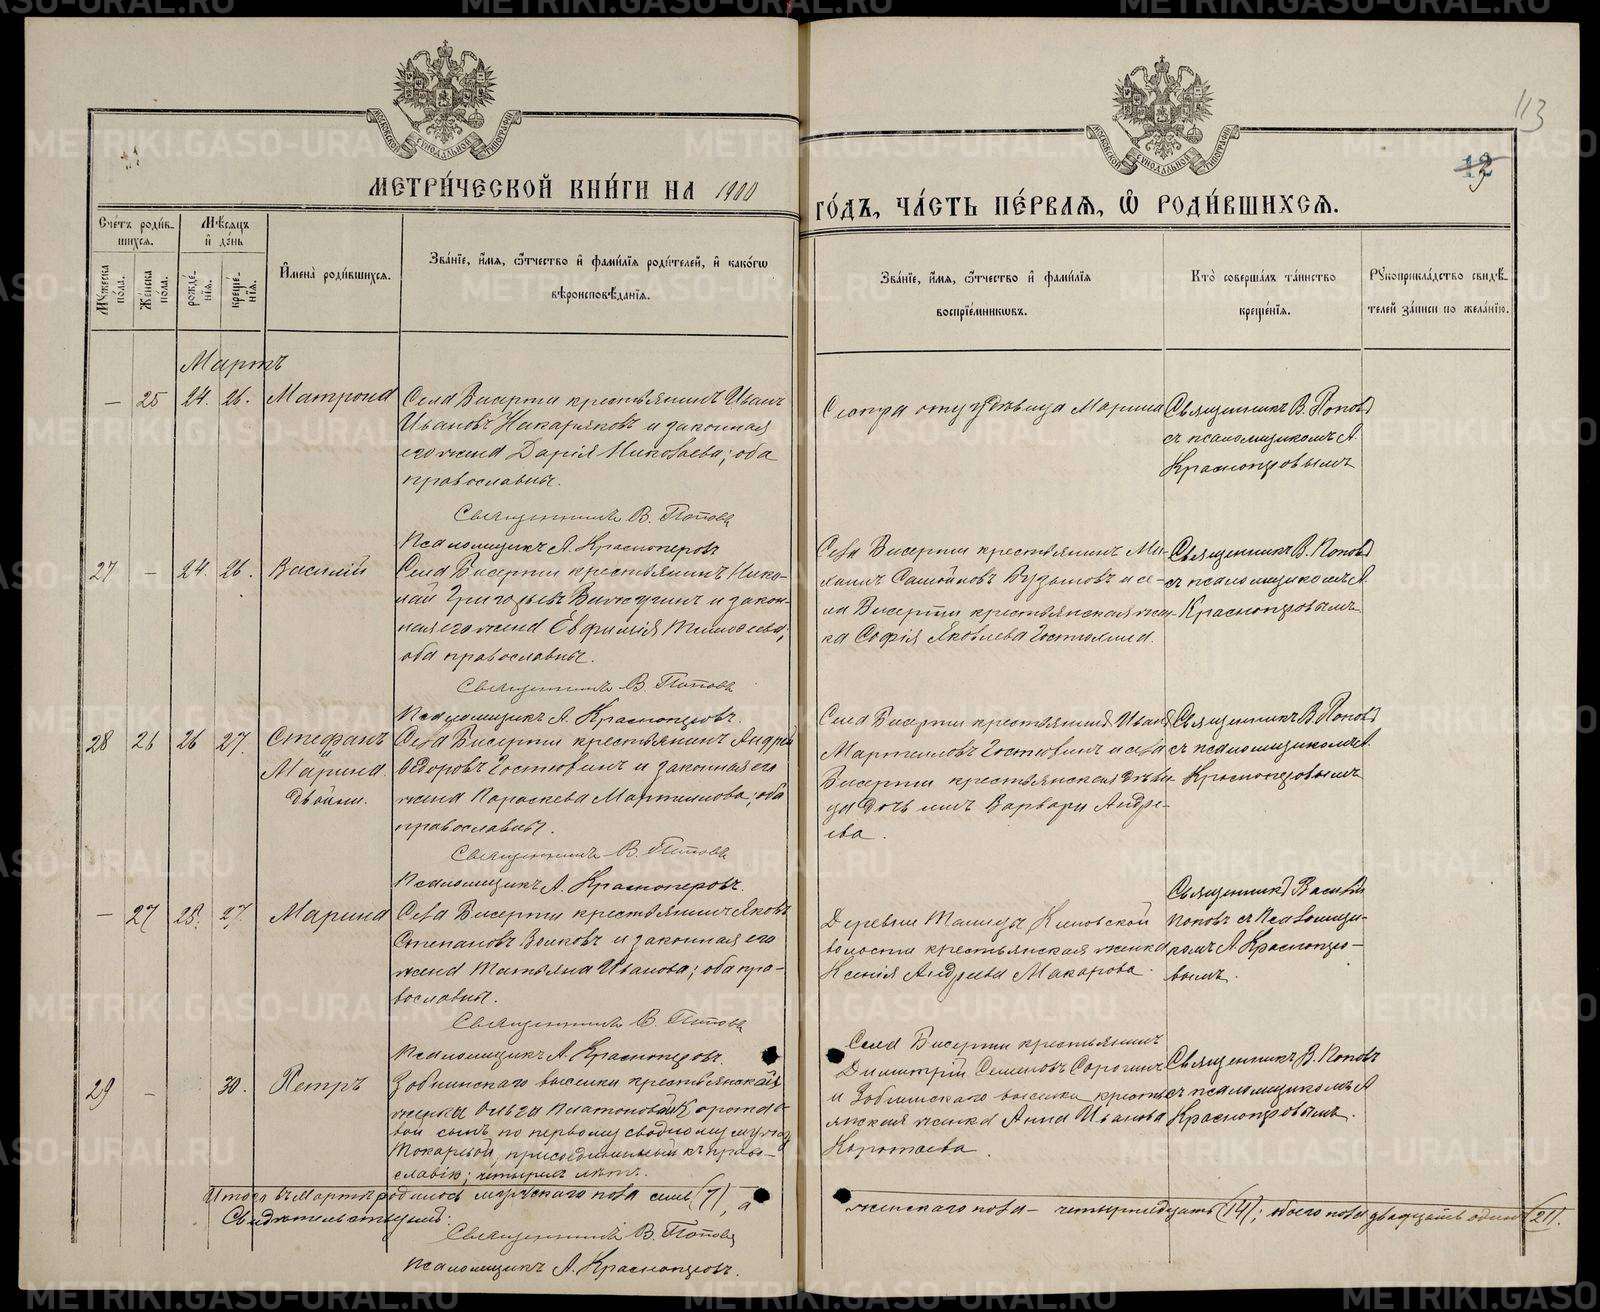 МЕТРИ́ЧЕСКОЙ КНИ́ГИ НА 1900
ГО́ДЪ, ЧА́СТЬ ПЕ́РВАЯ, Ѡ РОДИ́ВШИХСЯ.
113
Сче́тъ роди́в-
шихся.
Мѣ́сяцъ
и҆ де́нь
Мꙋ́жеска
по́ла.
Же́нска
по́ла.
рожде́-
нїя.
креще́-
нїя.
И҆мена̀ роди́вшихся.
Зва́нїе, и҆́мя, ѻ҆́тчество и҆ фами́лїя роди́телей, и҆ како́гѡ
вѣроисповѣ́данїя.
Зва́нїе, и҆́мя, ѻ҆́тчество и҆ фами́лїя
воспрїе́мникѡвъ.
Кто̀ соверша́лъ та́инство
креще́нїя.
Рꙋкоприкла́дство свидѣ́-
телей за́писи по жела́нїю.
Мартъ
— 25 24. 26. Матрона
Села Бисерти крестьянинъ Иванъ
Ивановъ Накаряковъ и законная
его жена Дарія Николаева; оба
православны.
Священникъ В. Поповъ
Псаломщикъ А. Красноперовъ
Сестра отца дѣвица Марина
Священникъ В. Поповъ
съ псаломщикомъ А.
Красноперовымъ
27 — 24. 26. Василій
Села Бисерти крестьянинъ Нико-
лай Григорьевъ и закон-
ная его жена Евфимія Тимофеева;
оба православны.
Священникъ В. Поповъ
Псаломщикъ А. Красноперовъ.
Села Бисерти крестьянинъ Ми-
Самойловъ и се-
ла Бисерти крестьянская жен-
ка Софія Яковлева Гостюхина.
Священникъ В. Поповъ
съ псаломщикомъ А.
Красноперовымъ
28 26 26 27. Стефанъ
и
Марина
двойни.
Села Бисерти крестьянинъ Андрей
Ѳедоровъ Гостюхинъ и законная его
жена Параскева Мартинова; оба
православны.
Священникъ В. Поповъ
Псаломщикъ А. Красноперовъ.
Села Бисерти крестьянинъ Иванъ
Мартиновъ Гостюхинъ и села
Бисерти крестьянская дѣви-
ца дочь имъ Варвара Андре-
ева.
Священникъ В. Поповъ
съ псаломщикомъ А.
Красноперовымъ
— 27 25. 27. Марина
Села Бисерти крестьянинъ Яковъ
Степановъ Волковъ и законная его
жена Татьяна Иванова; оба пра-
вославны.
Священникъ В. Поповъ
Псаломщикъ А. Красноперовъ.
Деревни Киповской
волости крестьянская женка
Ксенія Андреева Макарова.
Священникъ Василій
Поповъ съ Псаломщи-
комъ А. Красноперо-
вымъ.
29 — 30. Петръ
Зобнинскаго выселка крестьянская
женка Ольга Платоновой Коротае-
вой сынъ по первому сводному мужу
Токаревой, присоединенный къ право-
славію; четырехъ лѣтъ.
Села Бисерти крестьянинъ
Димитрій Семеновъ Сорогинъ
и Зобнинскаго выселка кресть-
янская женка Анна Иванова
Коротаева.
Священникъ В. Поповъ
съ псаломщикомъ А
Красноперовымъ.
Итого въ Мартѣ родилось мужескаго пола семь (7), а
женскаго пола — четырнадцать (14); обоего пола двадцать одинъ (21).
Свидѣтельствуемъ:
Священникъ В. Поповъ
Псаломщикъ А. Красноперовъ.
METRIKI.GASO-URAL.RU